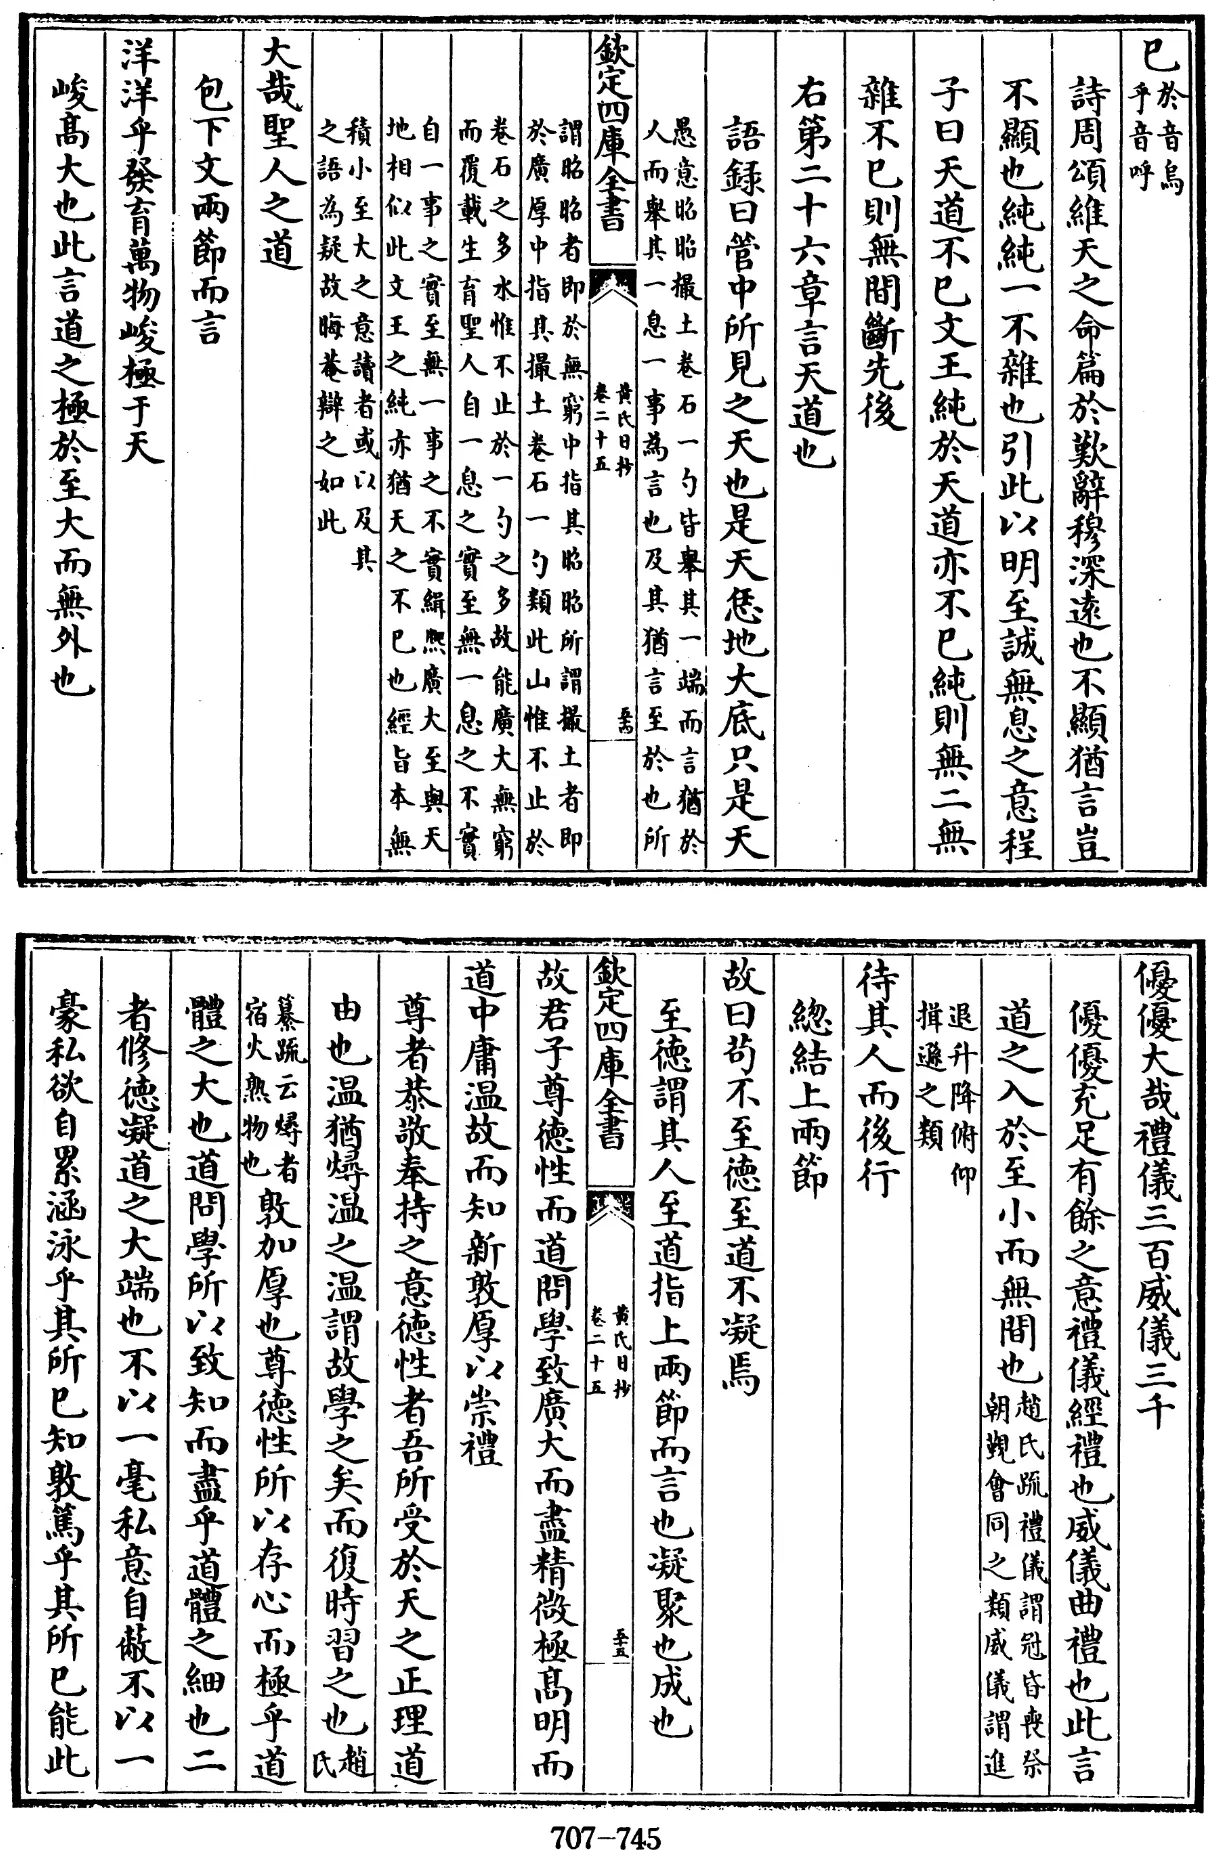 已於音烏乎音呼
詩周頌維天之命篇於歎辭穆深遠也不顯猶言豈
不顯也純純一不雜也引此以明至誠無息之意程
子曰天道不已文王純於天道亦不已純則無二無
雜不已則無間斷先後
右第二十六章言天道也
語録曰管中所見之天也是天恁地大底只是天
愚意昭昭撮土卷石一勺皆舉其一端而言猶於
人而舉其一息一事為言也及其猶言至於也所
欽定四庫全書
黄氏日抄
卷二十五
謂昭昭者即於無窮中指其昭昭所謂撮土者即
於廣厚中指其撮土卷石一勺類此山惟不止於
卷石之多水惟不止於一勺之多故能廣大無窮
而覆載生育聖人自一息之實至無一息之不實
自一事之實至無一事之不實緝熈廣大至與天
地相似此文王之純亦猶天之不已也經旨本無
積小至大之意讀者或以及其
之語為疑故晦菴辯之如此
大哉聖人之道
包下文兩節而言
洋洋乎發育萬物峻極于天
峻髙大也此言道之極於至大而無外也
優優大哉禮儀三百威儀三千
優優充足有餘之意禮儀經禮也威儀曲禮也此言
道之入於至小而無間也趙氏疏禮儀謂冠昏喪祭朝覲會同之類威儀謂進
退升降俯仰
揖遜之類
待其人而後行
緫結上兩節
故曰茍不至德至道不凝焉
至德謂其人至道指上兩節而言也凝聚也成也
欽定四庫全書
黄氏日抄
卷二十五
五十五
故君子尊德性而道問學致廣大而盡精微極髙明而
道中庸温故而知新敦厚以崇禮
尊者恭敬奉持之意德性者吾所受於天之正理道
由也温猶燖温之温謂故學之矣而復時習之也趙氏
纂疏云燖者宿火熟物也敦加厚也尊德性所以存心而極乎道
體之大也道問學所以致知而盡乎道體之細也二
者修德凝道之大端也不以一毫私意自蔽不以一
豪私欲自累涵泳乎其所已知敦篤乎其所已能此
707-745